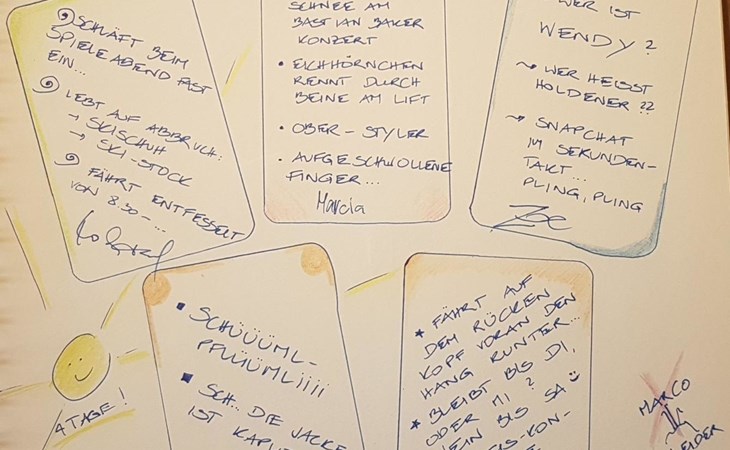 SCHLÄFT BEIM
SPIELEABEND FAST
EIN...
LEBT AUF ABBRUCH:
→ SKISCHUH
→ SKI-STOCK
FÄHRT ENTFESSELT
VON 8.30-...
SCHNEE AM
BASTIAN BAKER
KONZERT
• EICHHÖRNCHEN
RENNT DURCH
BEINE AM LIFT
• OBER-STYLER
• AUFGESCHWOLLENE
FINGER...
Marcia
WER IST
WENDY?
~ WER HEISST
HOLDENER??
~ SNAPCHAT
IM SEKUNDEN-
TAKT...
PLING, PLING
Zoe
4 TAGE!
▪ SCHÜÜÜML-
PFLÜÜMLIIII
▪ SCH... DIE JACKE
IST
* FÄHRT AUF
DEM RÜCKEN
KOPF VORAN DEN
HANG RUNTER...
* BLEIBT BIS DI,
ODER MI?
BIS SA
MARCO